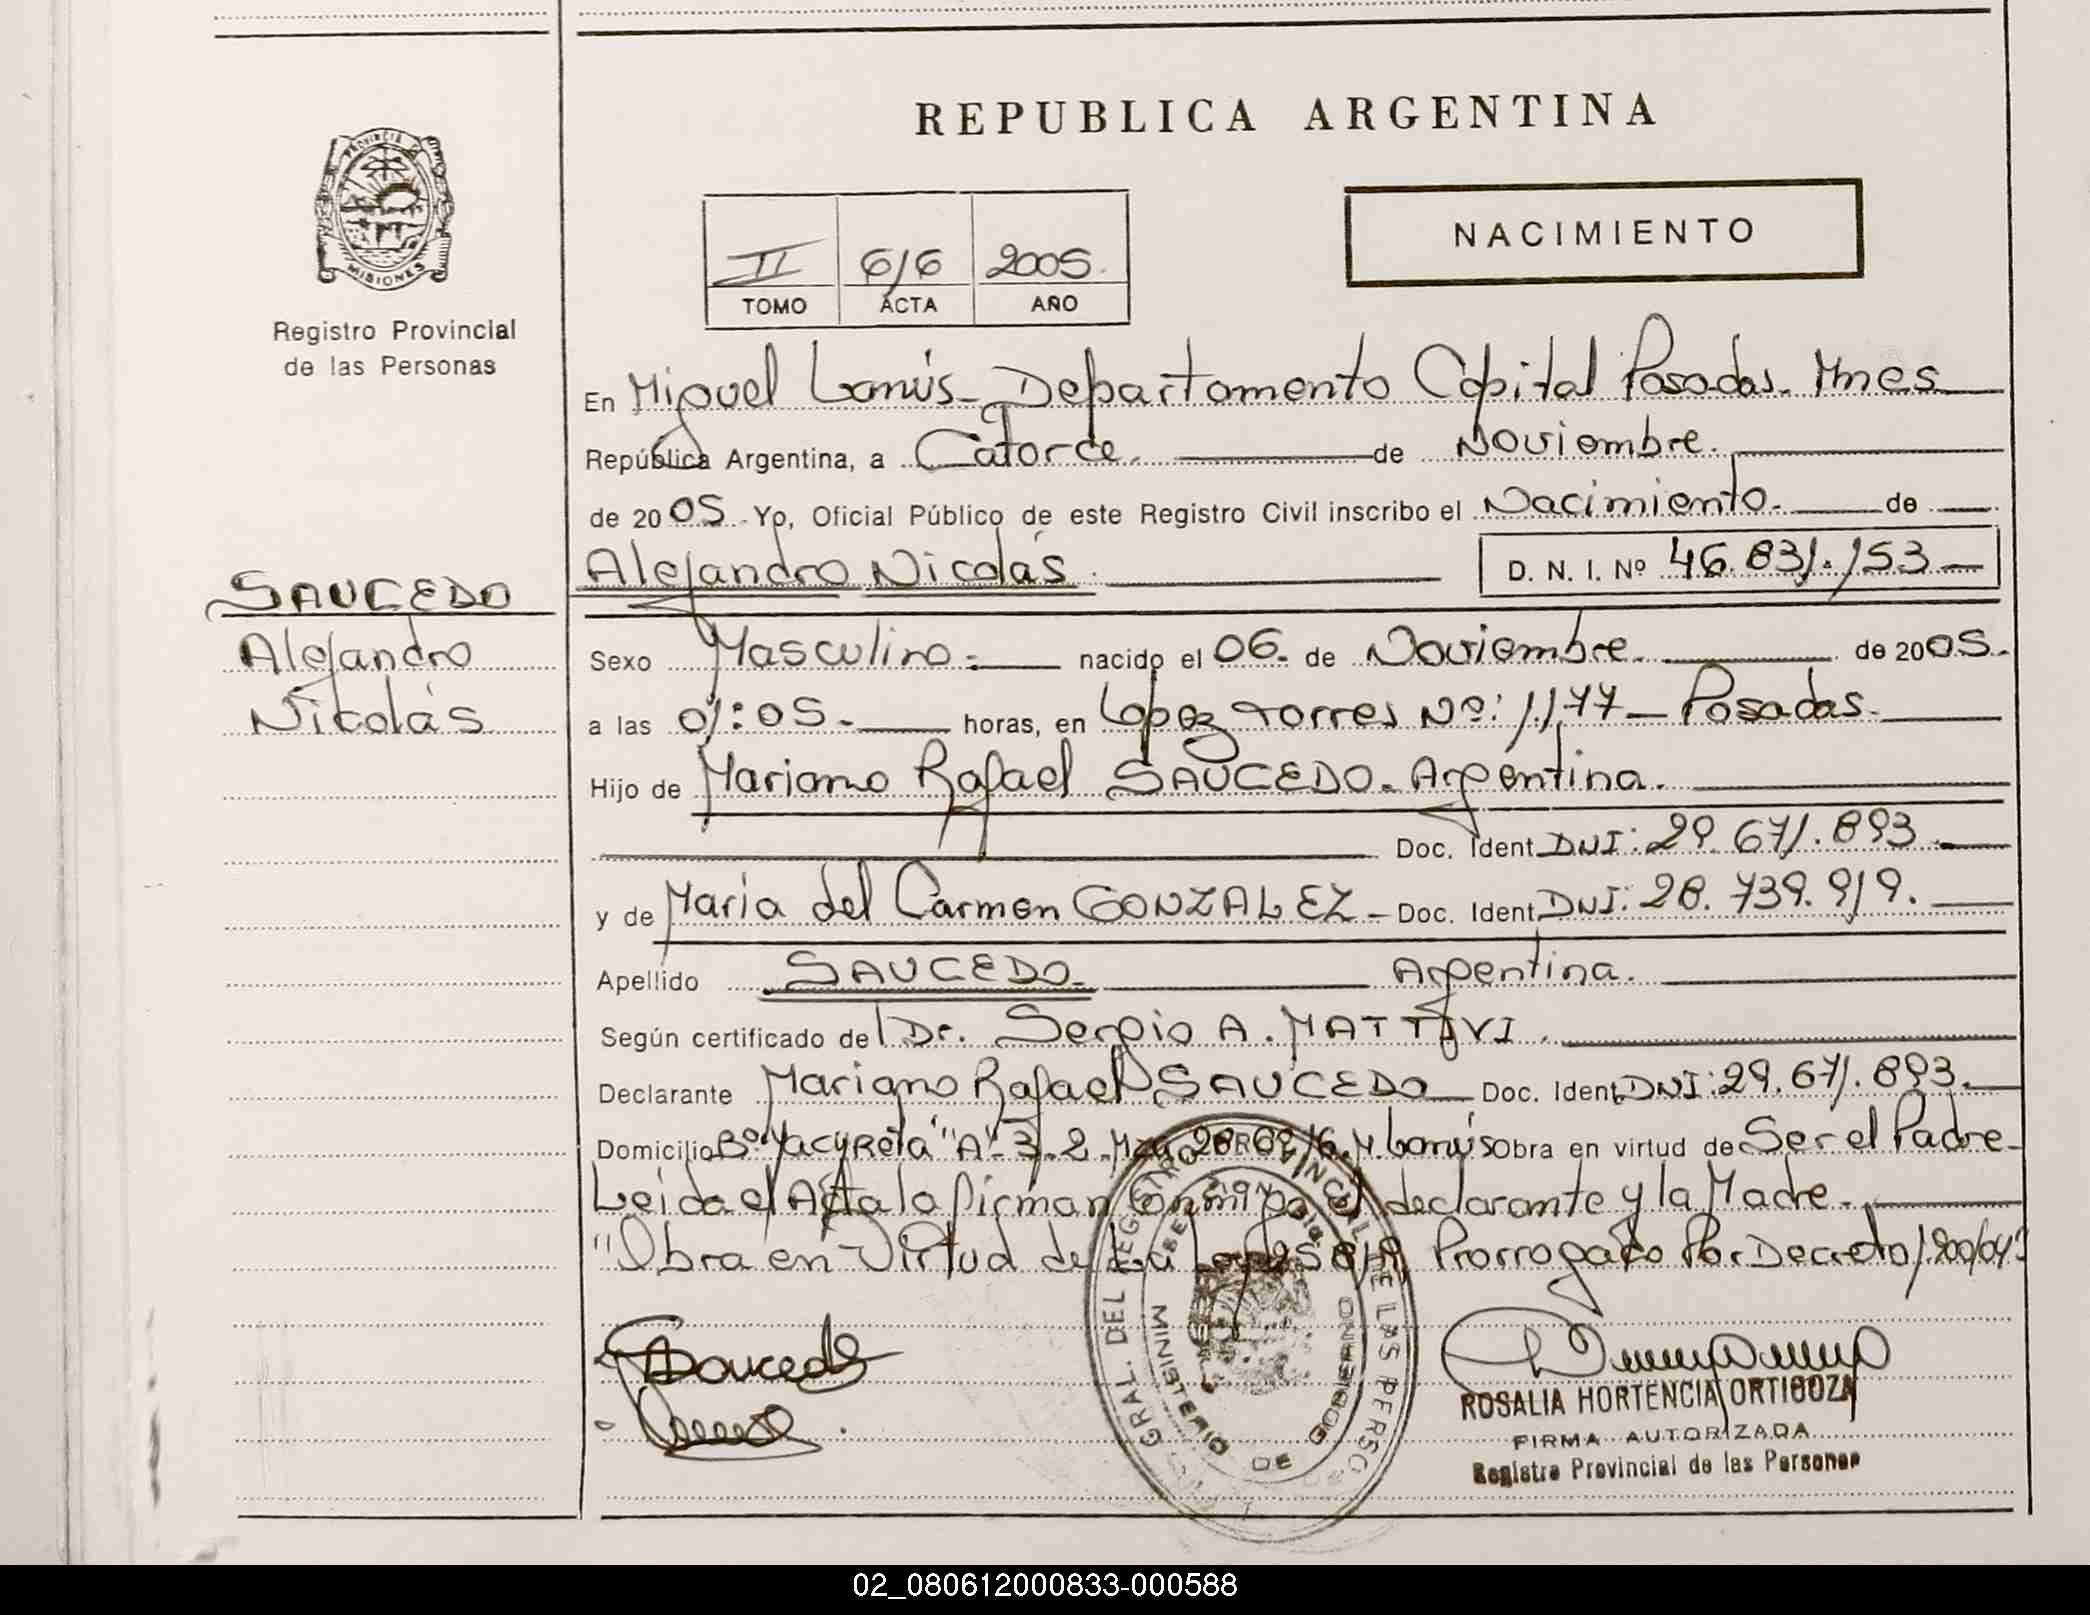 REPUBLICA ARGENTINA
PROVINCIA DE
MISIONES
Registro Provincial
de las Personas
II 616 2005.
TOMO ACTA AÑO
NACIMIENTO
En Miguel Lanús - Departamento Capital Posadas. Mnes
República Argentina, a Catorce. de Noviembre.
de 2005 Yo, Oficial Público de este Registro Civil inscribo el Nacimiento. de
SAUCEDO
Alejandro
Nicolás
Alejandro Nicolás. D. N. I. Nº 46.831.153
Sexo Masculino. nacido el 06. de Noviembre. de 2005.
a las 01:05. horas, en López Torres Nº: 1.177 - Posadas.
Hijo de Mariano Rafael SAUCEDO. Argentina.
Doc. Ident DNI: 29.671.893.
y de María del Carmen GONZALEZ - Doc. Ident DNI: 28.739.919.
Apellido SAUCEDO. Argentina.
Según certificado de Dr. Sergio A. MATTIVI.
Declarante Mariano Rafael SAUCEDO Doc. Ident DNI: 29.671.893.
Domicilio Bº Yacyretá "A" 3.2. Mza M. Lanús Obra en virtud de Ser el Padre
Leída el Acta la firman Conmigo el declarante y la Madre.
"Obra en Virtud de La Ley Prorrogado Por Decreto 1.200/04"
Saucedo
GRAL. DEL REGISTRO PROVINCIAL DE LAS PERSONAS
MINISTERIO DE GOBIERNO
ROSALIA HORTENCIA ORTIGOZA
FIRMA AUTORIZADA
Registro Provincial de las Personas
02_080612000833-000588